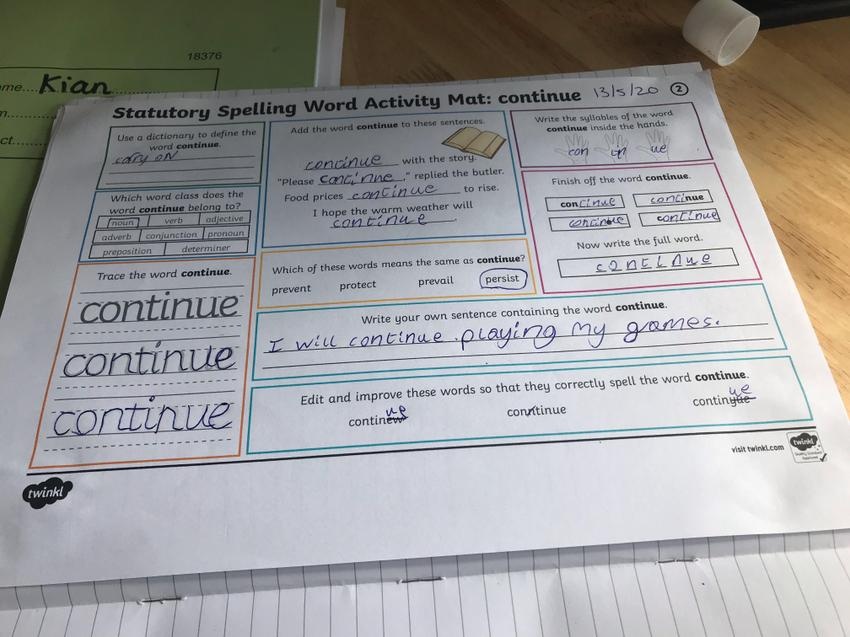 18376
ame....Kian
m...
ect...
Statutory Spelling Word Activity Mat: continue 13/5/20 2
Use a dictionary to define the
word continue.
carry on
Which word class does the
word continue belong to?
noun verb adjective
adverb conjunction pronoun
preposition determiner
Trace the word continue.
continue
continue
continue
Add the word continue to these sentences.
continue with the story.
"Please continue," replied the butler.
Food prices continue to rise.
I hope the warm weather will
continue.
Which of these words means the same as continue?
prevent protect prevail persist
Write the syllables of the word
continue inside the hands.
con tin ue
Finish off the word continue.
continue continue
continue continue
Now write the full word.
continue
Write your own sentence containing the word continue.
I will continue playing my games.
Edit and improve these words so that they correctly spell the word continue.
ue ue
continew conntinue continyue
visit twinkl.com
twinkl
twinkl